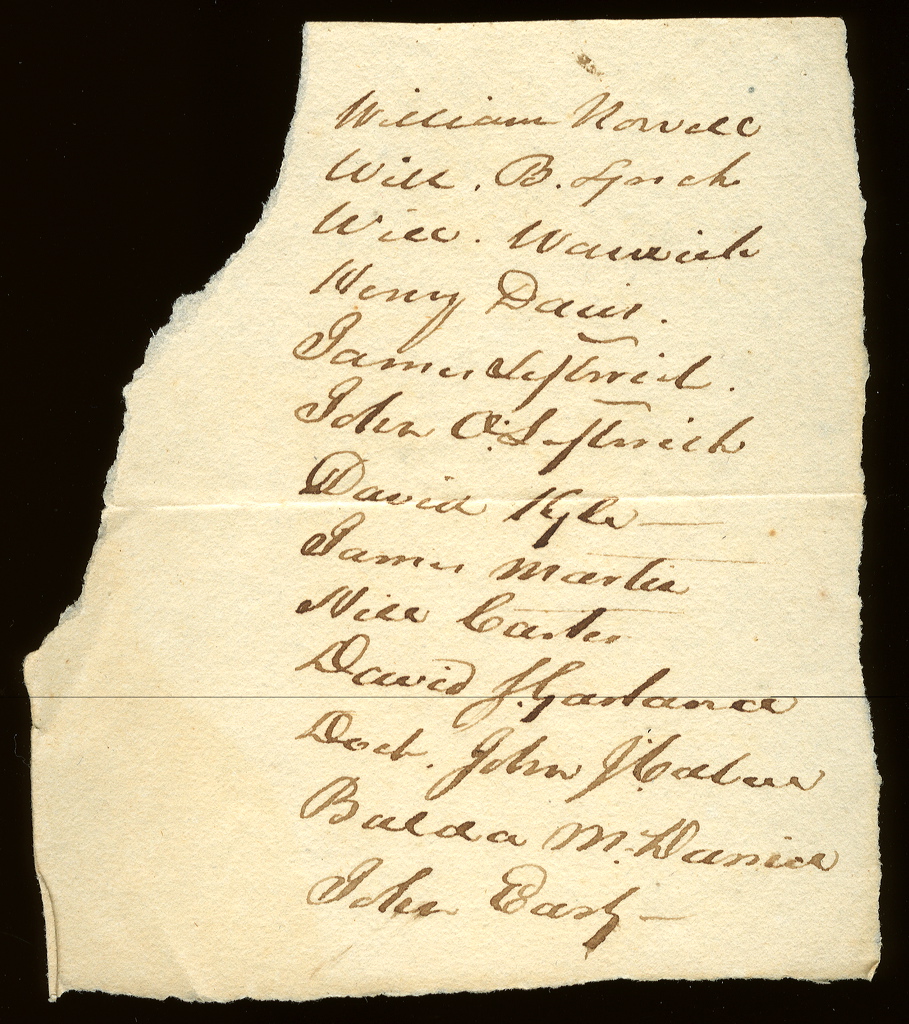 William Norvell
Will. B. Lynch
Will. Warwick
Henry Davis.
James Leftwich.
John O. Leftwich
David Kyle
James Martin
Hill Carter
David S. Garland
Doct. John J. Cabell
Balda McDaniel
John Early